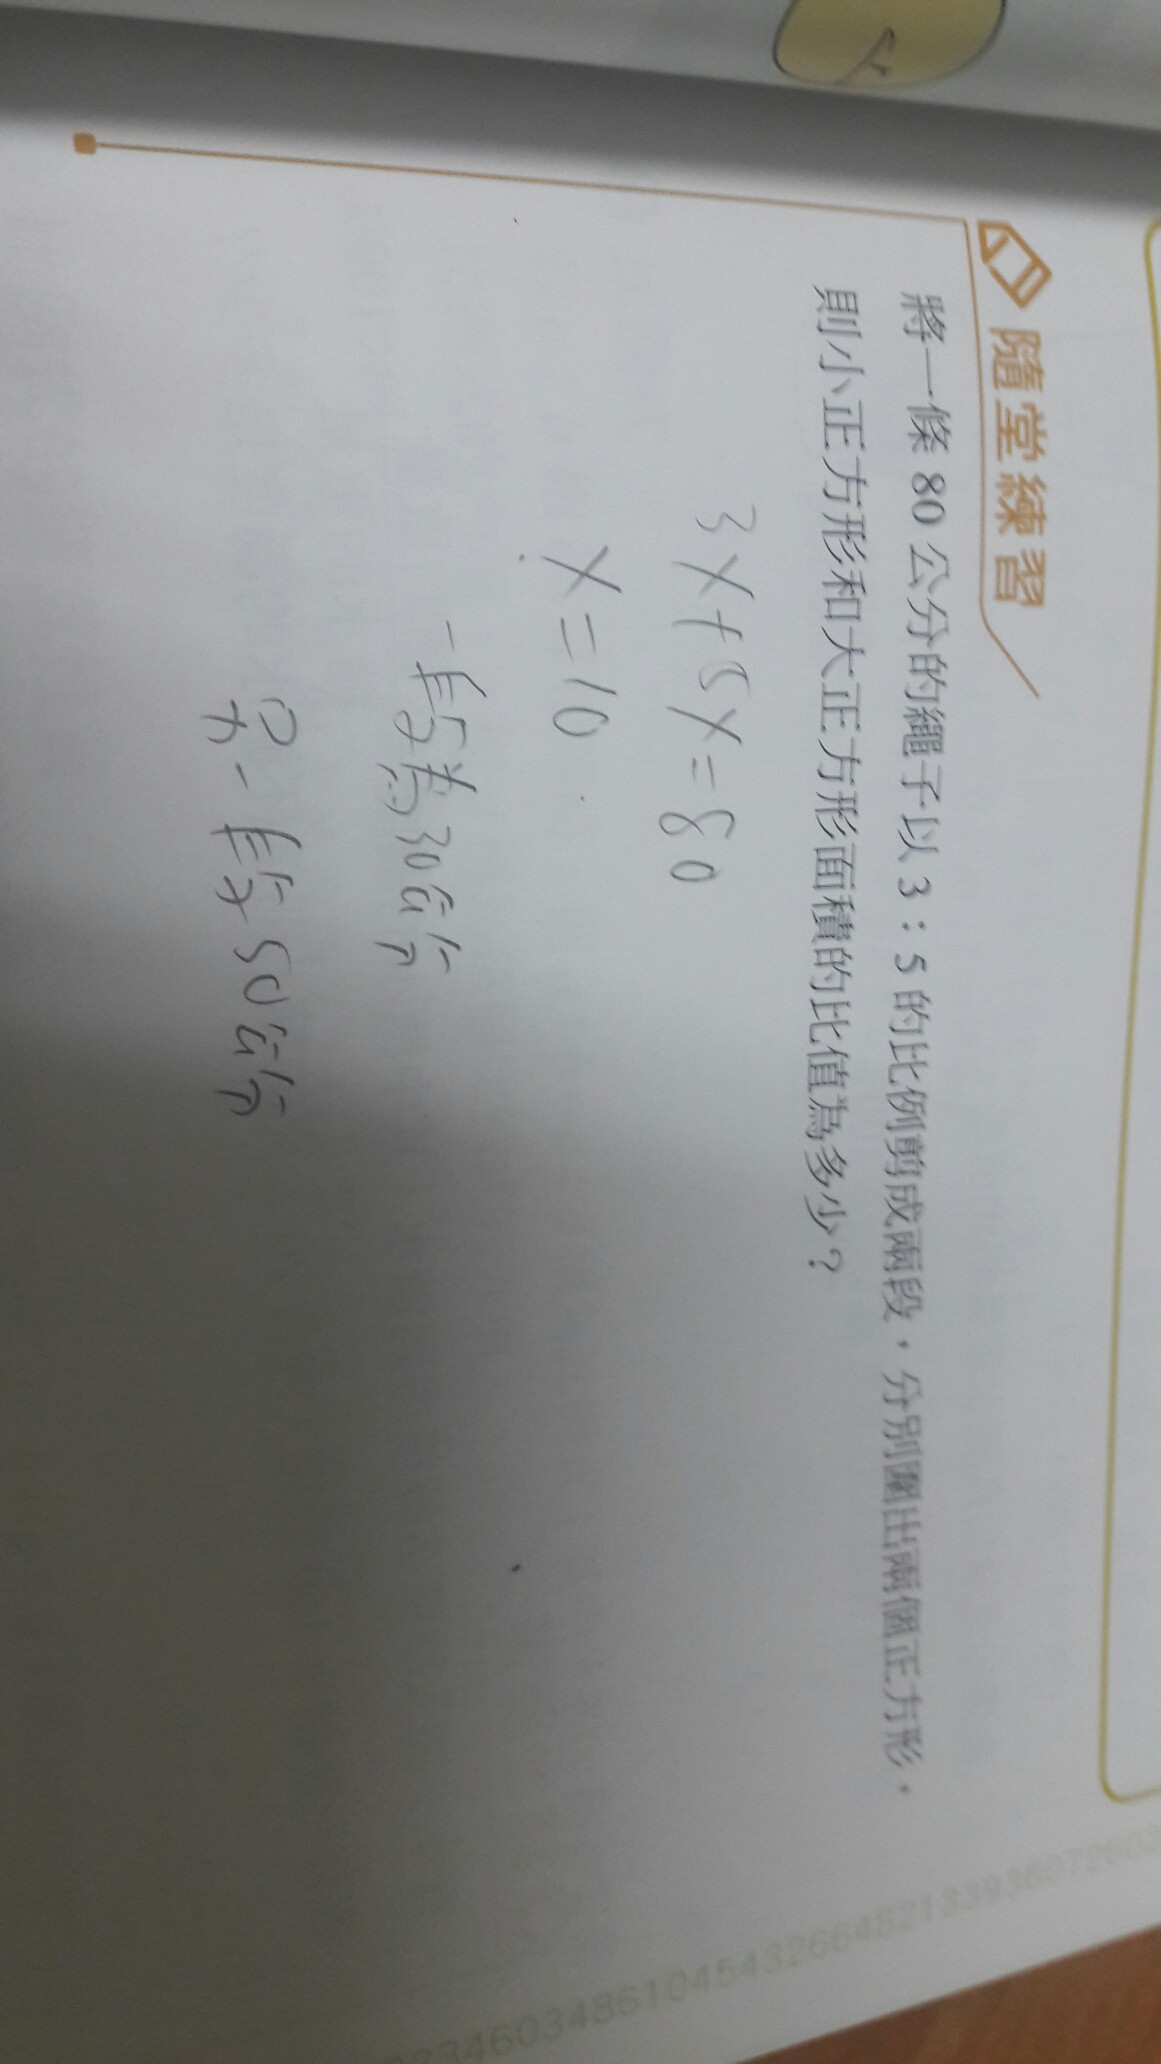 隨堂練習
將一條 80 公分的繩子以 3：5 的比例剪成兩段，分別圍出兩個正方形，
則小正方形和大正方形面積的比值為多少？
3X+5X=80
X=10
一段為30公分
另一段為50公分